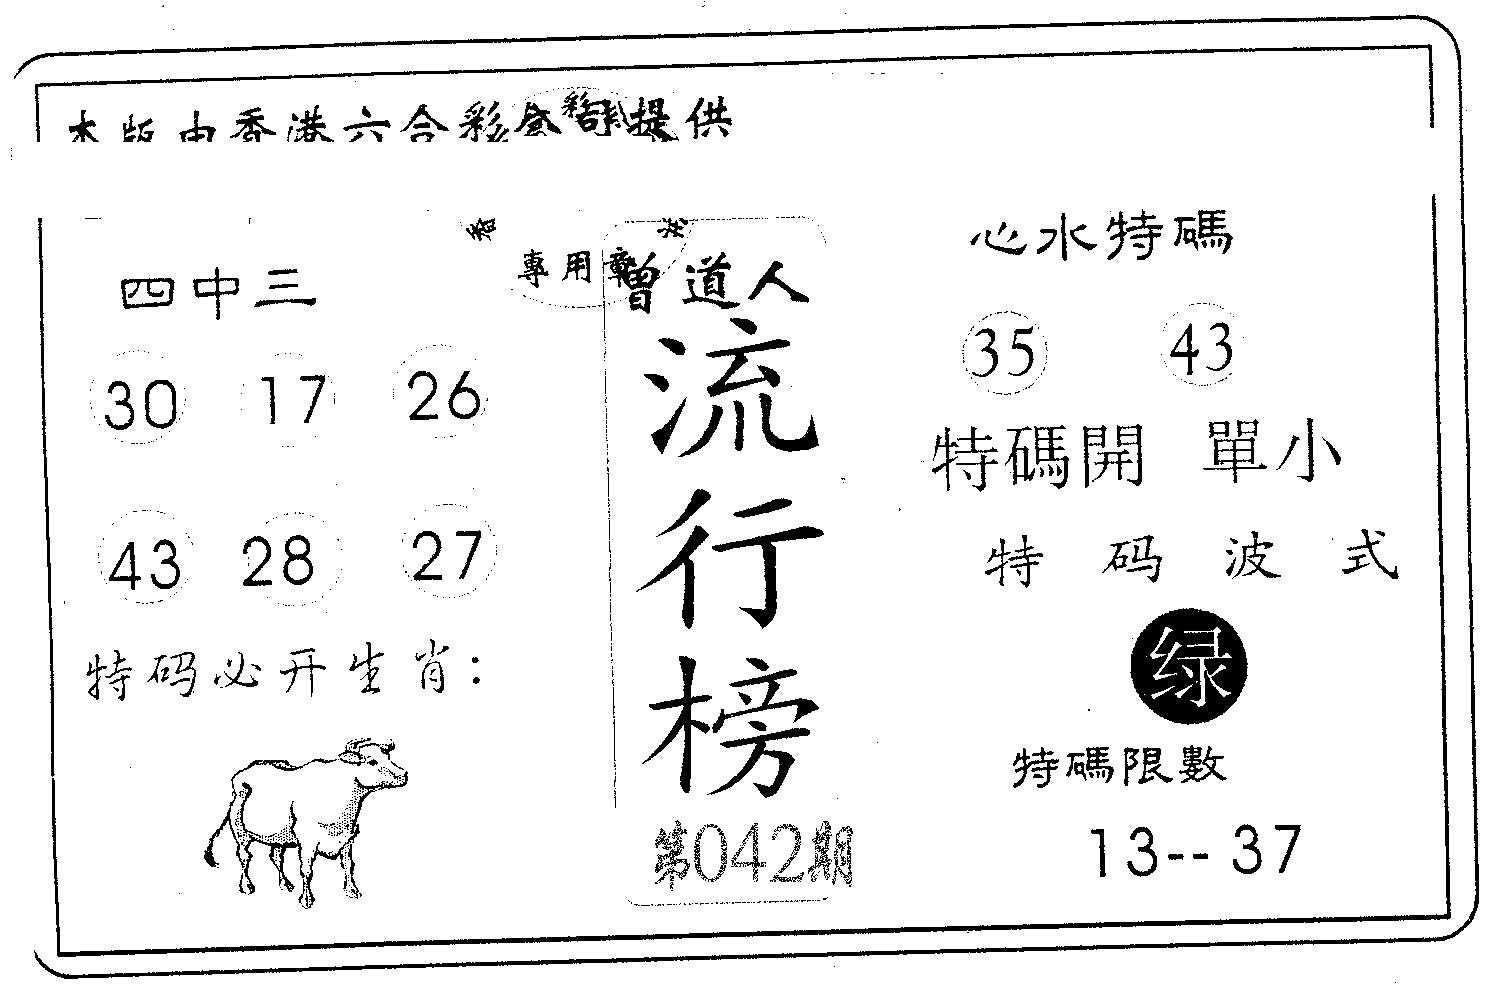 本版由香港六合彩公司提供
香 港
專用章
四中三
30 17 26
43 28 27
特码必开生肖：
曾道人
流行榜
第042期
心水特碼
35 43
特碼開 單小
特码波式
绿
特碼限數
13-- 37